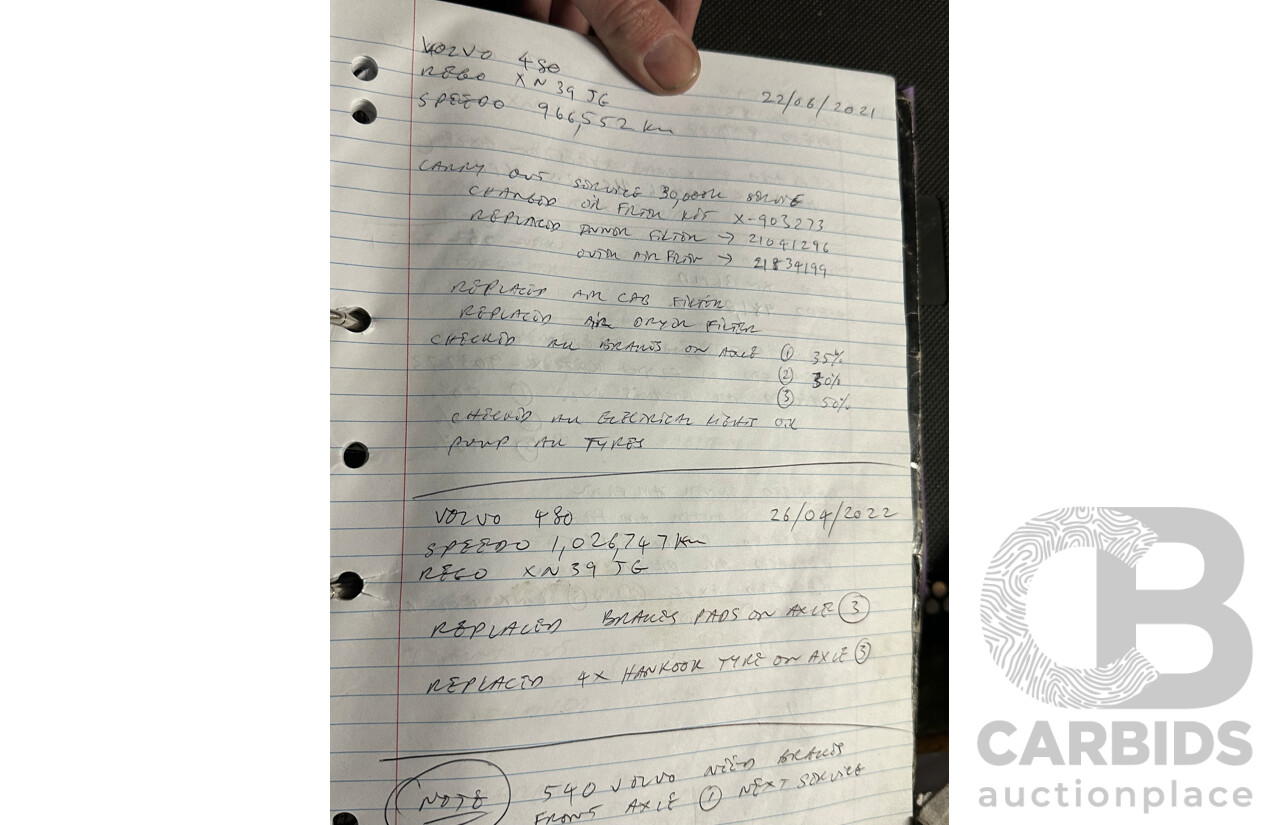 VOLVO 480
REGO XN39JG
22/06/2021
SPEEDO 966,552 km
CARRY OUT SERVICE 30,000K SERVICE
CHANGED OIL FILTER KIT X-903273
REPLACED INNER FILTER → 21041296
OUTER AIR FILTER → 21834199
REPLACED AIR CAB FILTER
REPLACED AIR DRYER FILTER
CHECKED ALL BRAKES ON AXLE ① 35%
② 30%
③ 50%
CHECKED ALL ELECTRICAL LIGHT OK
PUMP ALL TYRES
VOLVO 480 26/04/2022
SPEEDO 1,026,747 km
REGO XN39JG
REPLACED BRAKES PADS ON AXLE ③
REPLACED 4X HANKOOK TYRE ON AXLE ③
NOTE 540 VOLVO NEED BRAKES
FRONT AXLE ① NEXT SERVICE
CARBIDS
auctionplace